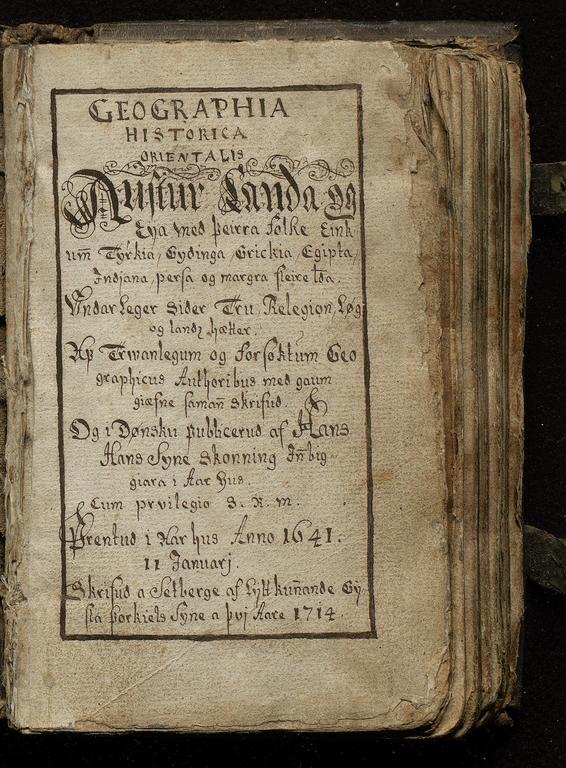 GEOGRAPHIA
HISTORICA
ORIENTALIS
Austur Landa og
Eya med þeirra folke Eink
um̄ Tyrkia, Gydinga, Grickia, Egipta,
Indiana, persa og margra fleire
Undarleger Sider Tru, Relegion, Løg
og landz hætter.
Up Trwanlegum og forsoktum Geo
graphicus Authoribus med gaum
giæfne saman̄ Skrifud.
Og i Dønsku publicerud af Hans
Hans Syne Skonning In̄big
giara i Aar hus.
Cum prvilegio S. R. M.
Prentud i Aar hus Anno 1641.
11 Januarj.
Skrifud a Setberge af Lijtt kun̄ande Gÿ
sla þorkiels Syne a þvi Aare 1714